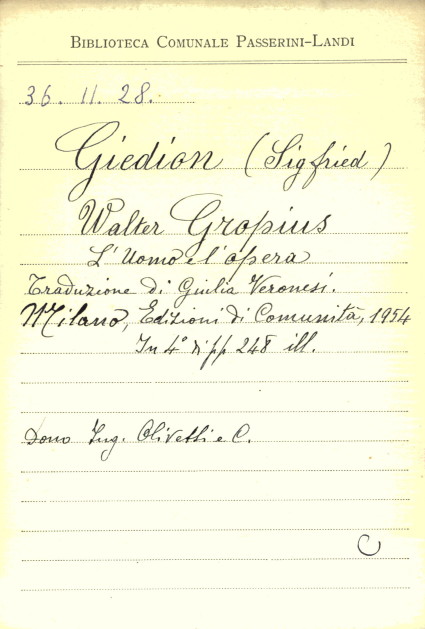 BIBLIOTECA COMUNALE PASSERINI-LANDI
36. 11. 28.
Giedion (Sigfried)
Walter Gropius
L'Uomo e l'opera
Traduzione di Giulia Veronesi.
Milano, Edizioni di Comunità, 1954
In 4° di pp 248 ill.
Dono Ing. Olivetti e C.
C